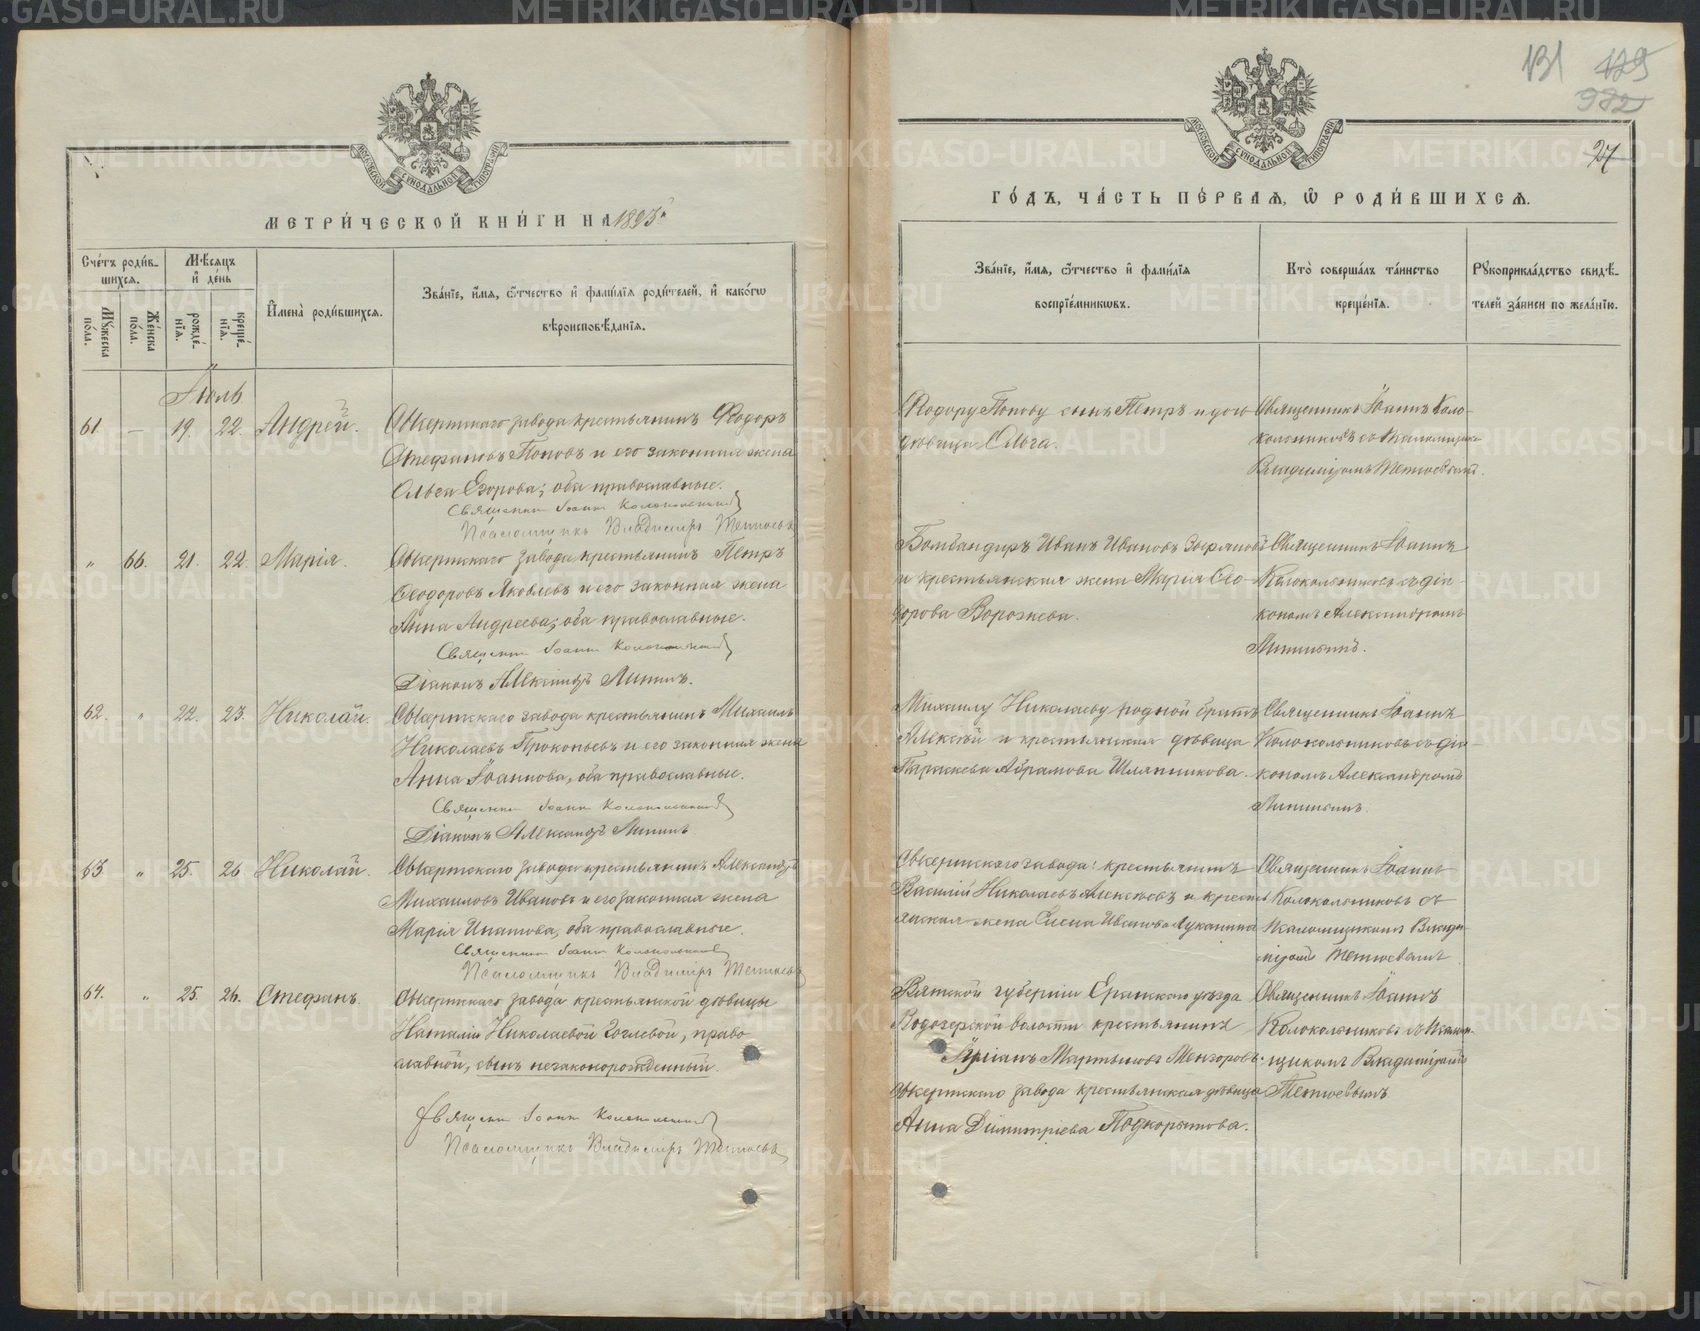 МЕТРИ́ЧЕСКОЙ КНИ́ГИ НА 1893й
Сче́тъ роди́вшихся.
Му́жеска по́ла.
Же́нска по́ла.
Мѣ́сяцъ и де́нь
рожде́нія.
креще́нія.
Имена̀ роди́вшихся.
Зва́ніе, и́мя, ѿтчество и фами́лія роди́телей, и како́гѡ
вѣроисповѣ́данія.
Іюль
61 — 19. 22. Андрей.
Сысертскаго завода крестьянинъ Ѳеодоръ
Стефановъ Поповъ и его законная жена
Ольга Егорова; оба православные.
Священникъ Іоаннъ Колокольниковъ
Псаломщикъ Владиміръ
" 66. 21. 22. Марія.
Сысертскаго завода крестьянинъ Петръ
Ѳеодоровъ Яковлевъ и его законная жена
Анна Андреева; оба православные.
Священникъ Іоаннъ Колокольниковъ
Діаконъ Александръ
62. " 22. 23. Николай.
Сысертскаго завода крестьянинъ Михаилъ
Николаевъ Прокопьевъ и его законная жена
Анна Іоаннова, оба православные.
Священникъ Іоаннъ Колокольниковъ
Діаконъ Александръ
63. " 25. 26 Николай.
Сысертскаго завода крестьянинъ Александръ
Михаиловъ Ивановъ и его законная жена
Марія Ипатова, оба православные.
Священникъ Іоаннъ Колокольниковъ
Псаломщикъ Владиміръ
64. " 25. 26. Стефанъ.
Сысертскаго завода крестьянской дѣвицы
Наталіи Николаевой, право
славной, сынъ незаконорожденный.
Священникъ Іоаннъ Колокольниковъ
Псаломщикъ Владиміръ
131 129
982
27
ГО́ДЪ, ЧА́СТЬ ПЕ́РВАЯ, Ѡ РОДИ́ВШИХСЯ.
Зва́ніе, и́мя, ѿтчество и фами́лія
воспріе́мниковъ.
Кто̀ соверша́лъ та́инство
креще́нія.
Рукоприкла́дство свидѣ́телей за́писи по жела́нію.
Ѳеодору Попову сынъ Петръ и дочь
дѣвица Ольга.
Священникъ Іоаннъ Коло-
кольниковъ съ псаломщико
Владиміромъ
Бомбандиръ Иванъ Ивановъ
и крестьянская жена Марія Ѳео-
дорова
Священникъ Іоаннъ
Колокольниковъ съ діа-
кономъ Александромъ
Михаилу Николаеву родной братъ
Алексѣй и крестьянская дѣвица
Параскева Абрамова Шляпникова.
Священникъ Іоаннъ
Колокольниковъ съ діа-
кономъ Александромъ
Сысертскаго завода: крестьянинъ
Василій Николаевъ Алексѣевъ и кресть
янская жена Елена Иванова Луканина
Священникъ Іоаннъ
Колокольниковъ съ
псаломщикомъ Влади-
міромъ
Вятской губерніи Яранскаго уѣзда
волости крестьянинъ
Мартыновъ
Сысертскаго завода крестьянская дѣвица
Анна Димитріева Подкорытова.
Священникъ Іоаннъ
Колокольниковъ съ псалом-
щикомъ Владиміромъ
METRIKI.GASO-URAL.RU